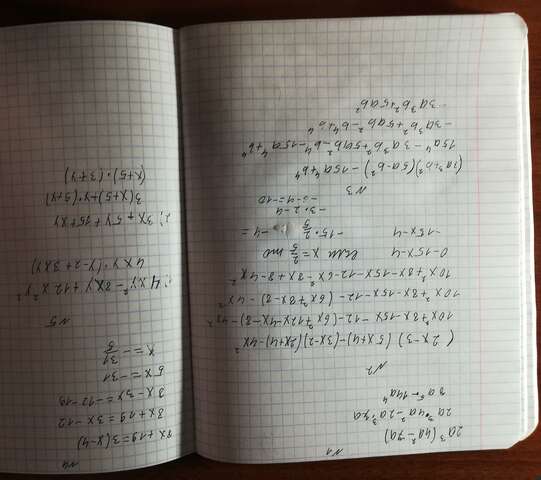 №1
2a³(4a²-7a)
2a³·4a²-2a³·7a
8a⁵-14a⁴
№2
(2x-3)(5x+4)-(3x-2)(2x+4)-4x²
10x²+8x-15x-12-(6x²+12x-4x-8)-4x²
10x²+8x-15x-12-(6x²+8x-8)-4x²
10x²+8x-15x-12-6x²-8x+8-4x²
0-15x-4 если x=2/5 то
-15x-4 -15·2/5-4=
-3·2-4
-6-4=-10
№3
(3a³+b²)(5a-b²)-15a⁴+b⁴
15a⁴-3a³b²+5ab²-b⁴-15a⁴+b⁴
-3a³b²+5ab²-b⁴+b⁴
-3a³b²+5ab²
№4
8x+19=3(x-4)
8x+19=3x-12
8x-3x=-12-19
5x=-31
x=-31/5
№5
1) 4xy²-8xy+12x²y²
4xy·(y-2+3xy)
2) 3x+5y+15+xy
3(x+5)+y(5+x)
(x+5)·(3+y)